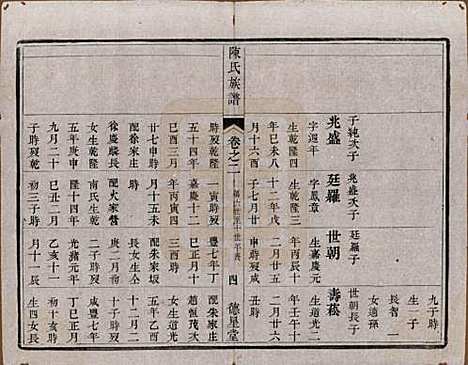 九子時
生一子
長者一
女適孫
子純次子 兆盛次子 廷羅子 世朝長子
兆盛 廷羅 世朝 壽菘
字選年 字鳳章 生嘉慶元 生道光二
生乾隆 生乾隆三 年丙辰十 年壬午十
年己未八 十二年戊 二月廿五 二月廿六
月十六酉 子七月廿 申時歿咸 丑時
陳氏族譜 卷之二 四 德星堂
時歿乾隆 一寅時歿 豐七年丁 配朱家庄
五十四年 嘉慶十 巳正月十 趙恆茂次
己酉三月 年寅四 三酉時 女生道光
廿七申時 月十五未 配朱家坂 五年乙酉
配徐家庄 時 長女生仝 十二月二
徐慶麐長 配大家營 庚二月初 十日子時
女生乾隆 南氏生乾 二子時歿 咸豐七年
五年庚申 隆十四年 光緒元年 丁巳正月
九月二十 乙亥十一 初十亥時
子時歿乾 初三子時 月十一辰 生四女長